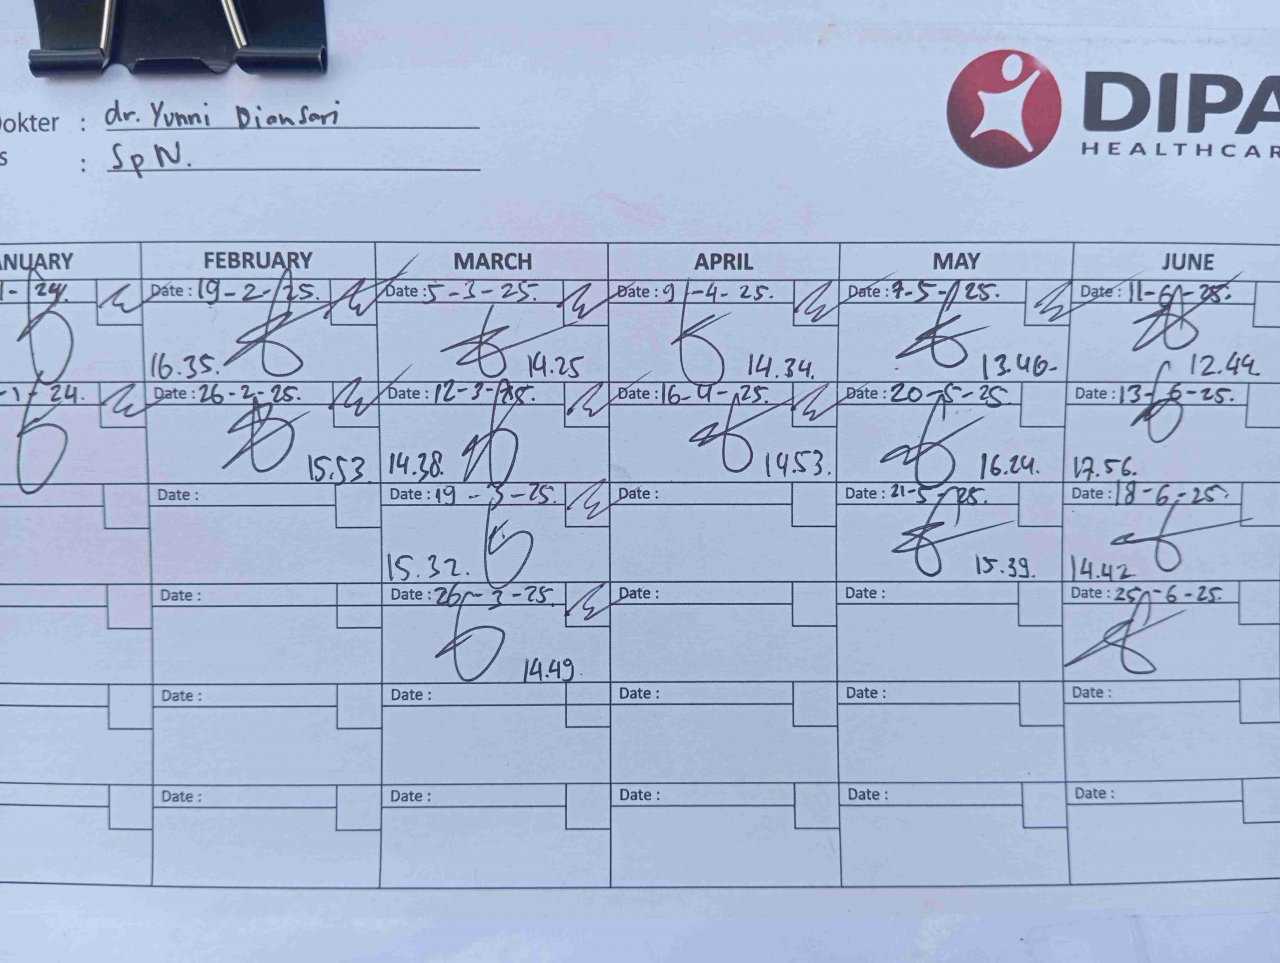 Dokter : dr. Yunni Diansari
s : SpN.
DIPA
HEALTHCAR
ANUARY FEBRUARY MARCH APRIL MAY JUNE
1- 24. Date : 19-2-25. Date : 5-3-25. Date : 9-4-25. Date : 7-5-25. Date : 11-6-25.
16.35. 14.25 14.34. 13.46. 12.44
-1-24. Date : 26-2-25. Date : 12-3-25. Date : 16-4-25. Date : 20-5-25. Date : 13-6-25.
15.53 14.38. 14.53. 16.24. 17.56.
Date : Date : 19-3-25. Date : Date : 21-5-25. Date : 18-6-25.
15.32. 15.39. 14.42
Date : Date : 26-3-25. Date : Date : Date : 25-6-25.
14.49.
Date : Date : Date : Date : Date :
Date : Date : Date : Date : Date :